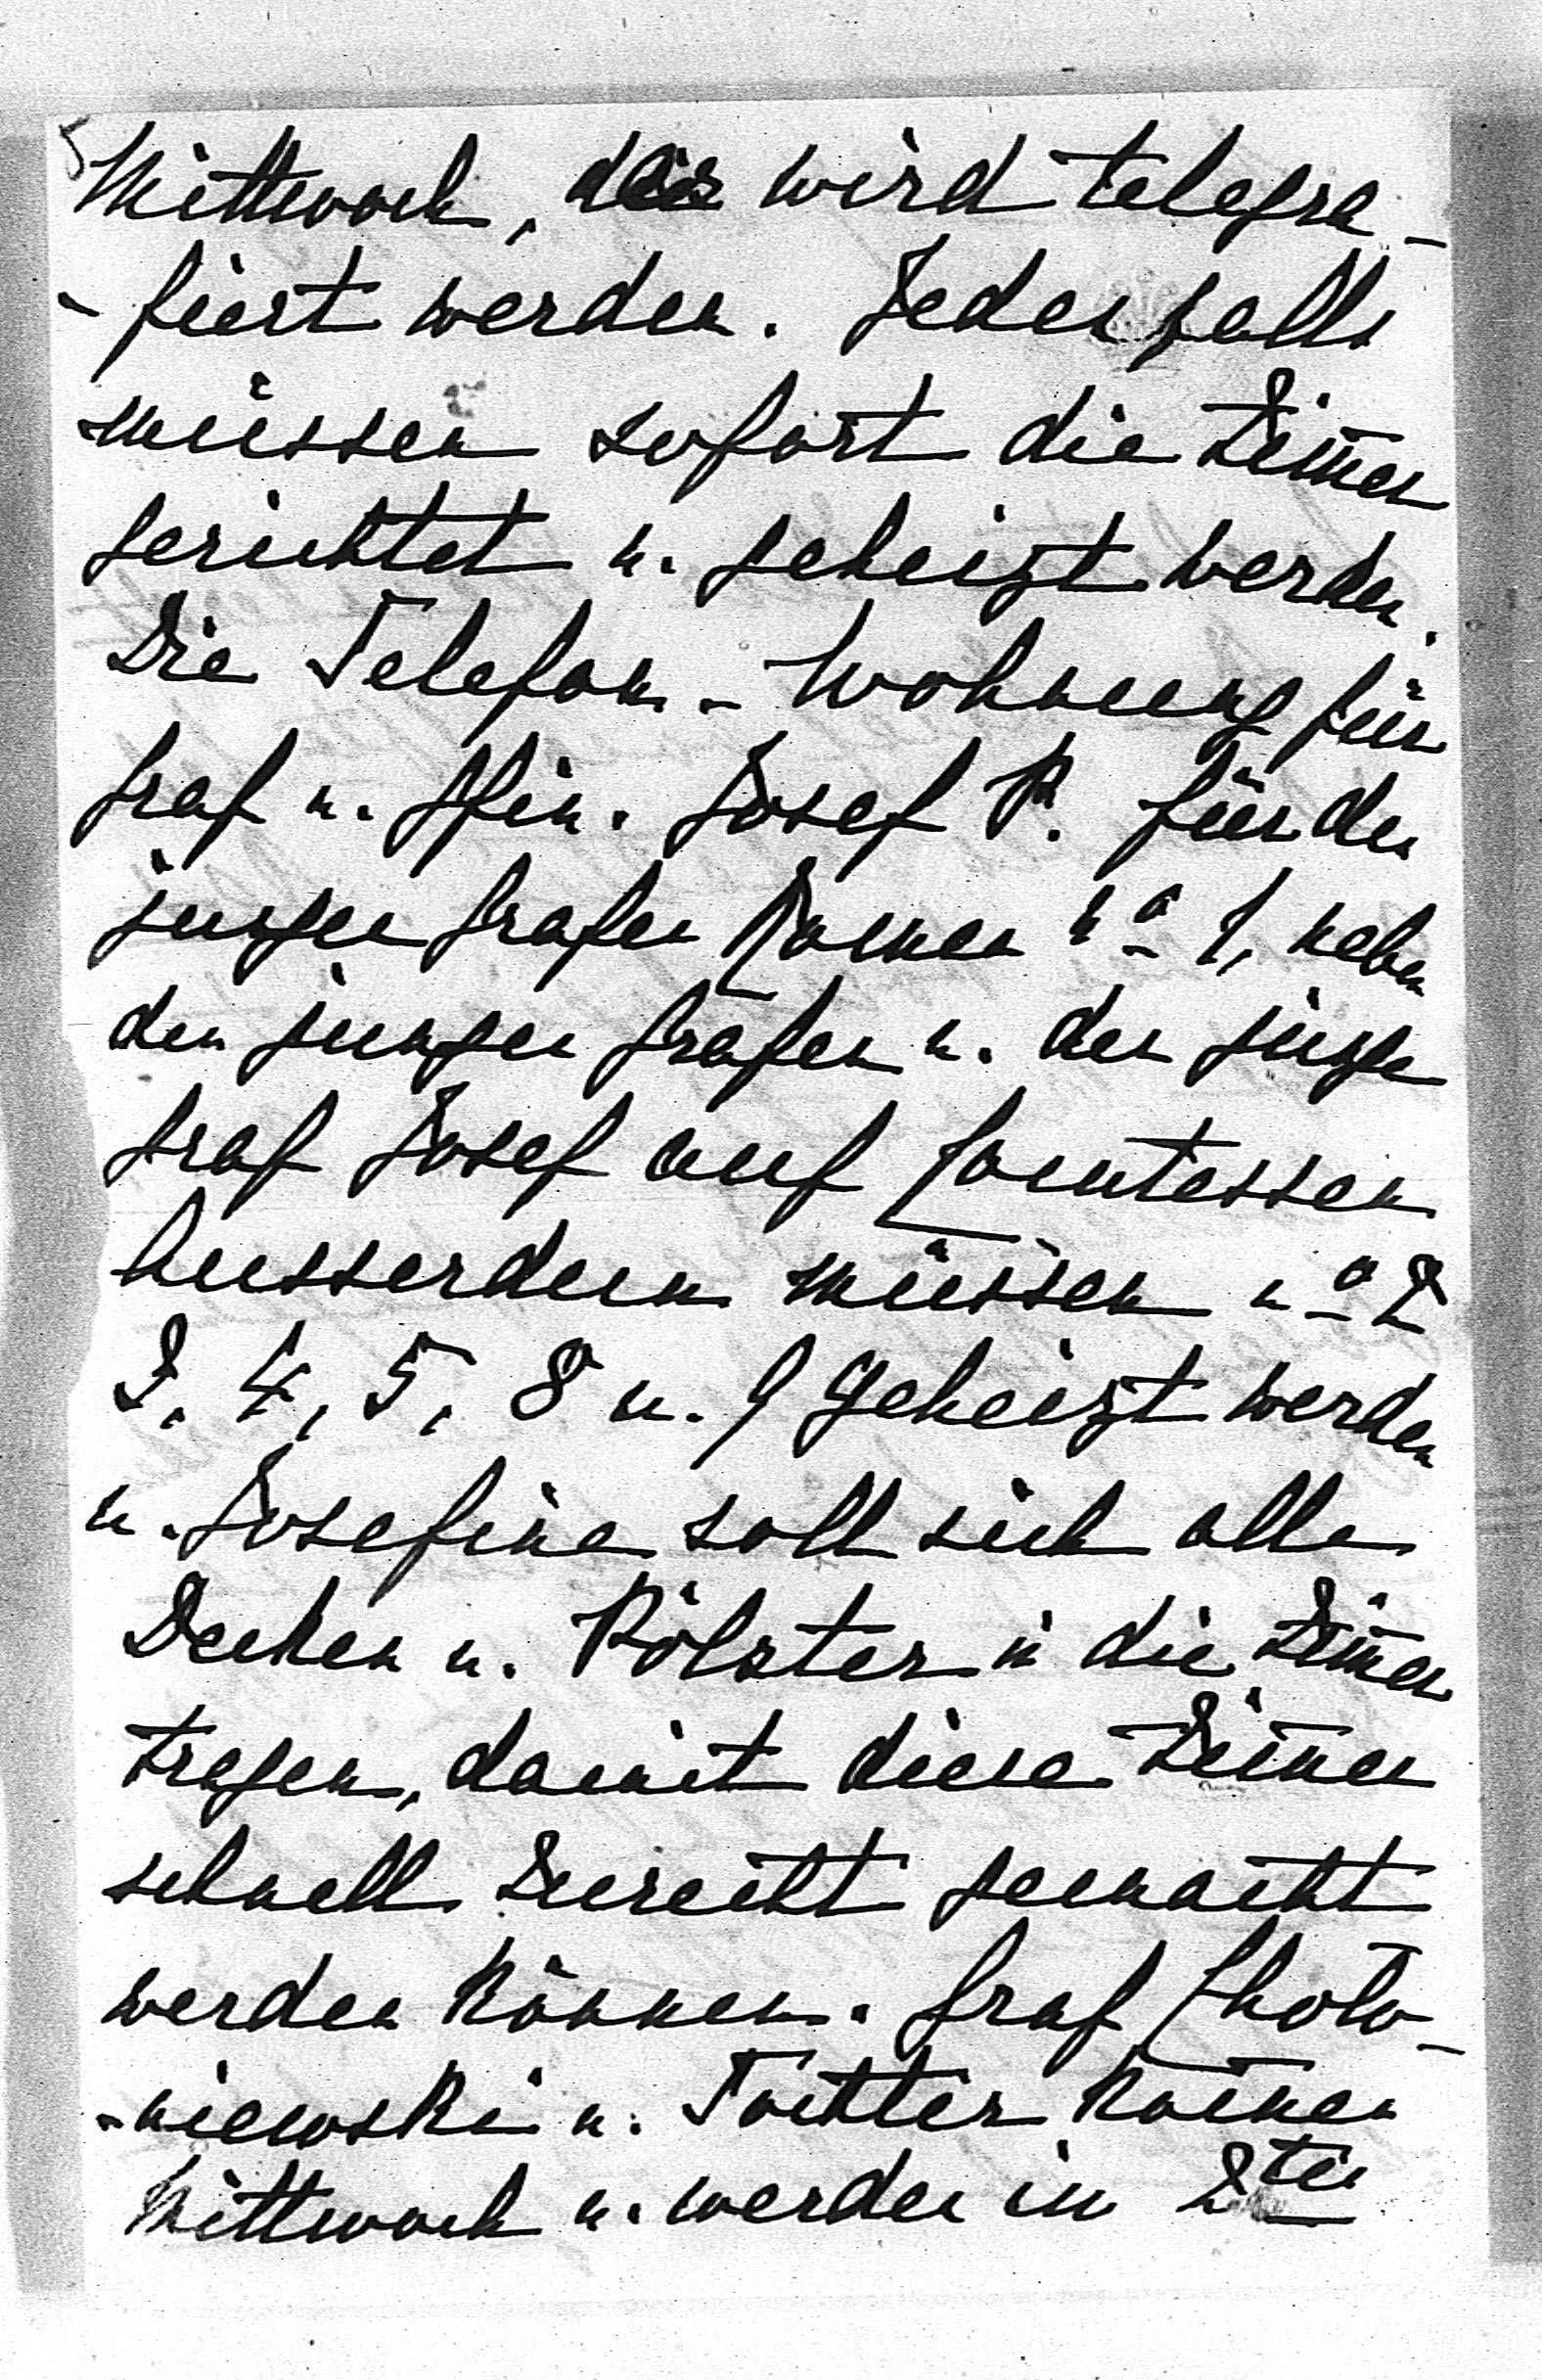 Mittwoch, das wird telegra-
-fiert werden. Jedenfalls
müssen sofort die Zim̄er
gerichtet u. geheizt werden.
Die Telefon-Wohnung für
Graf u. Gfin. Josef P. für den
jungen Grafen No 1, neben
den jungen Grafen u. der junge
Graf Josef auf Comtessen
Ausserdem müssen No 2
3, 4, 5, 8 u. 9 geheizt werden
u. Josefine soll sich alle
Decken u. Pölster in die Zim̄er
tragen, damit diese Zim̄er
schnell Zurecht gemacht
werden können. Graf Cholo-
-niewski u. Tochter kom̄en
Mittwoch u. werden im 2ten